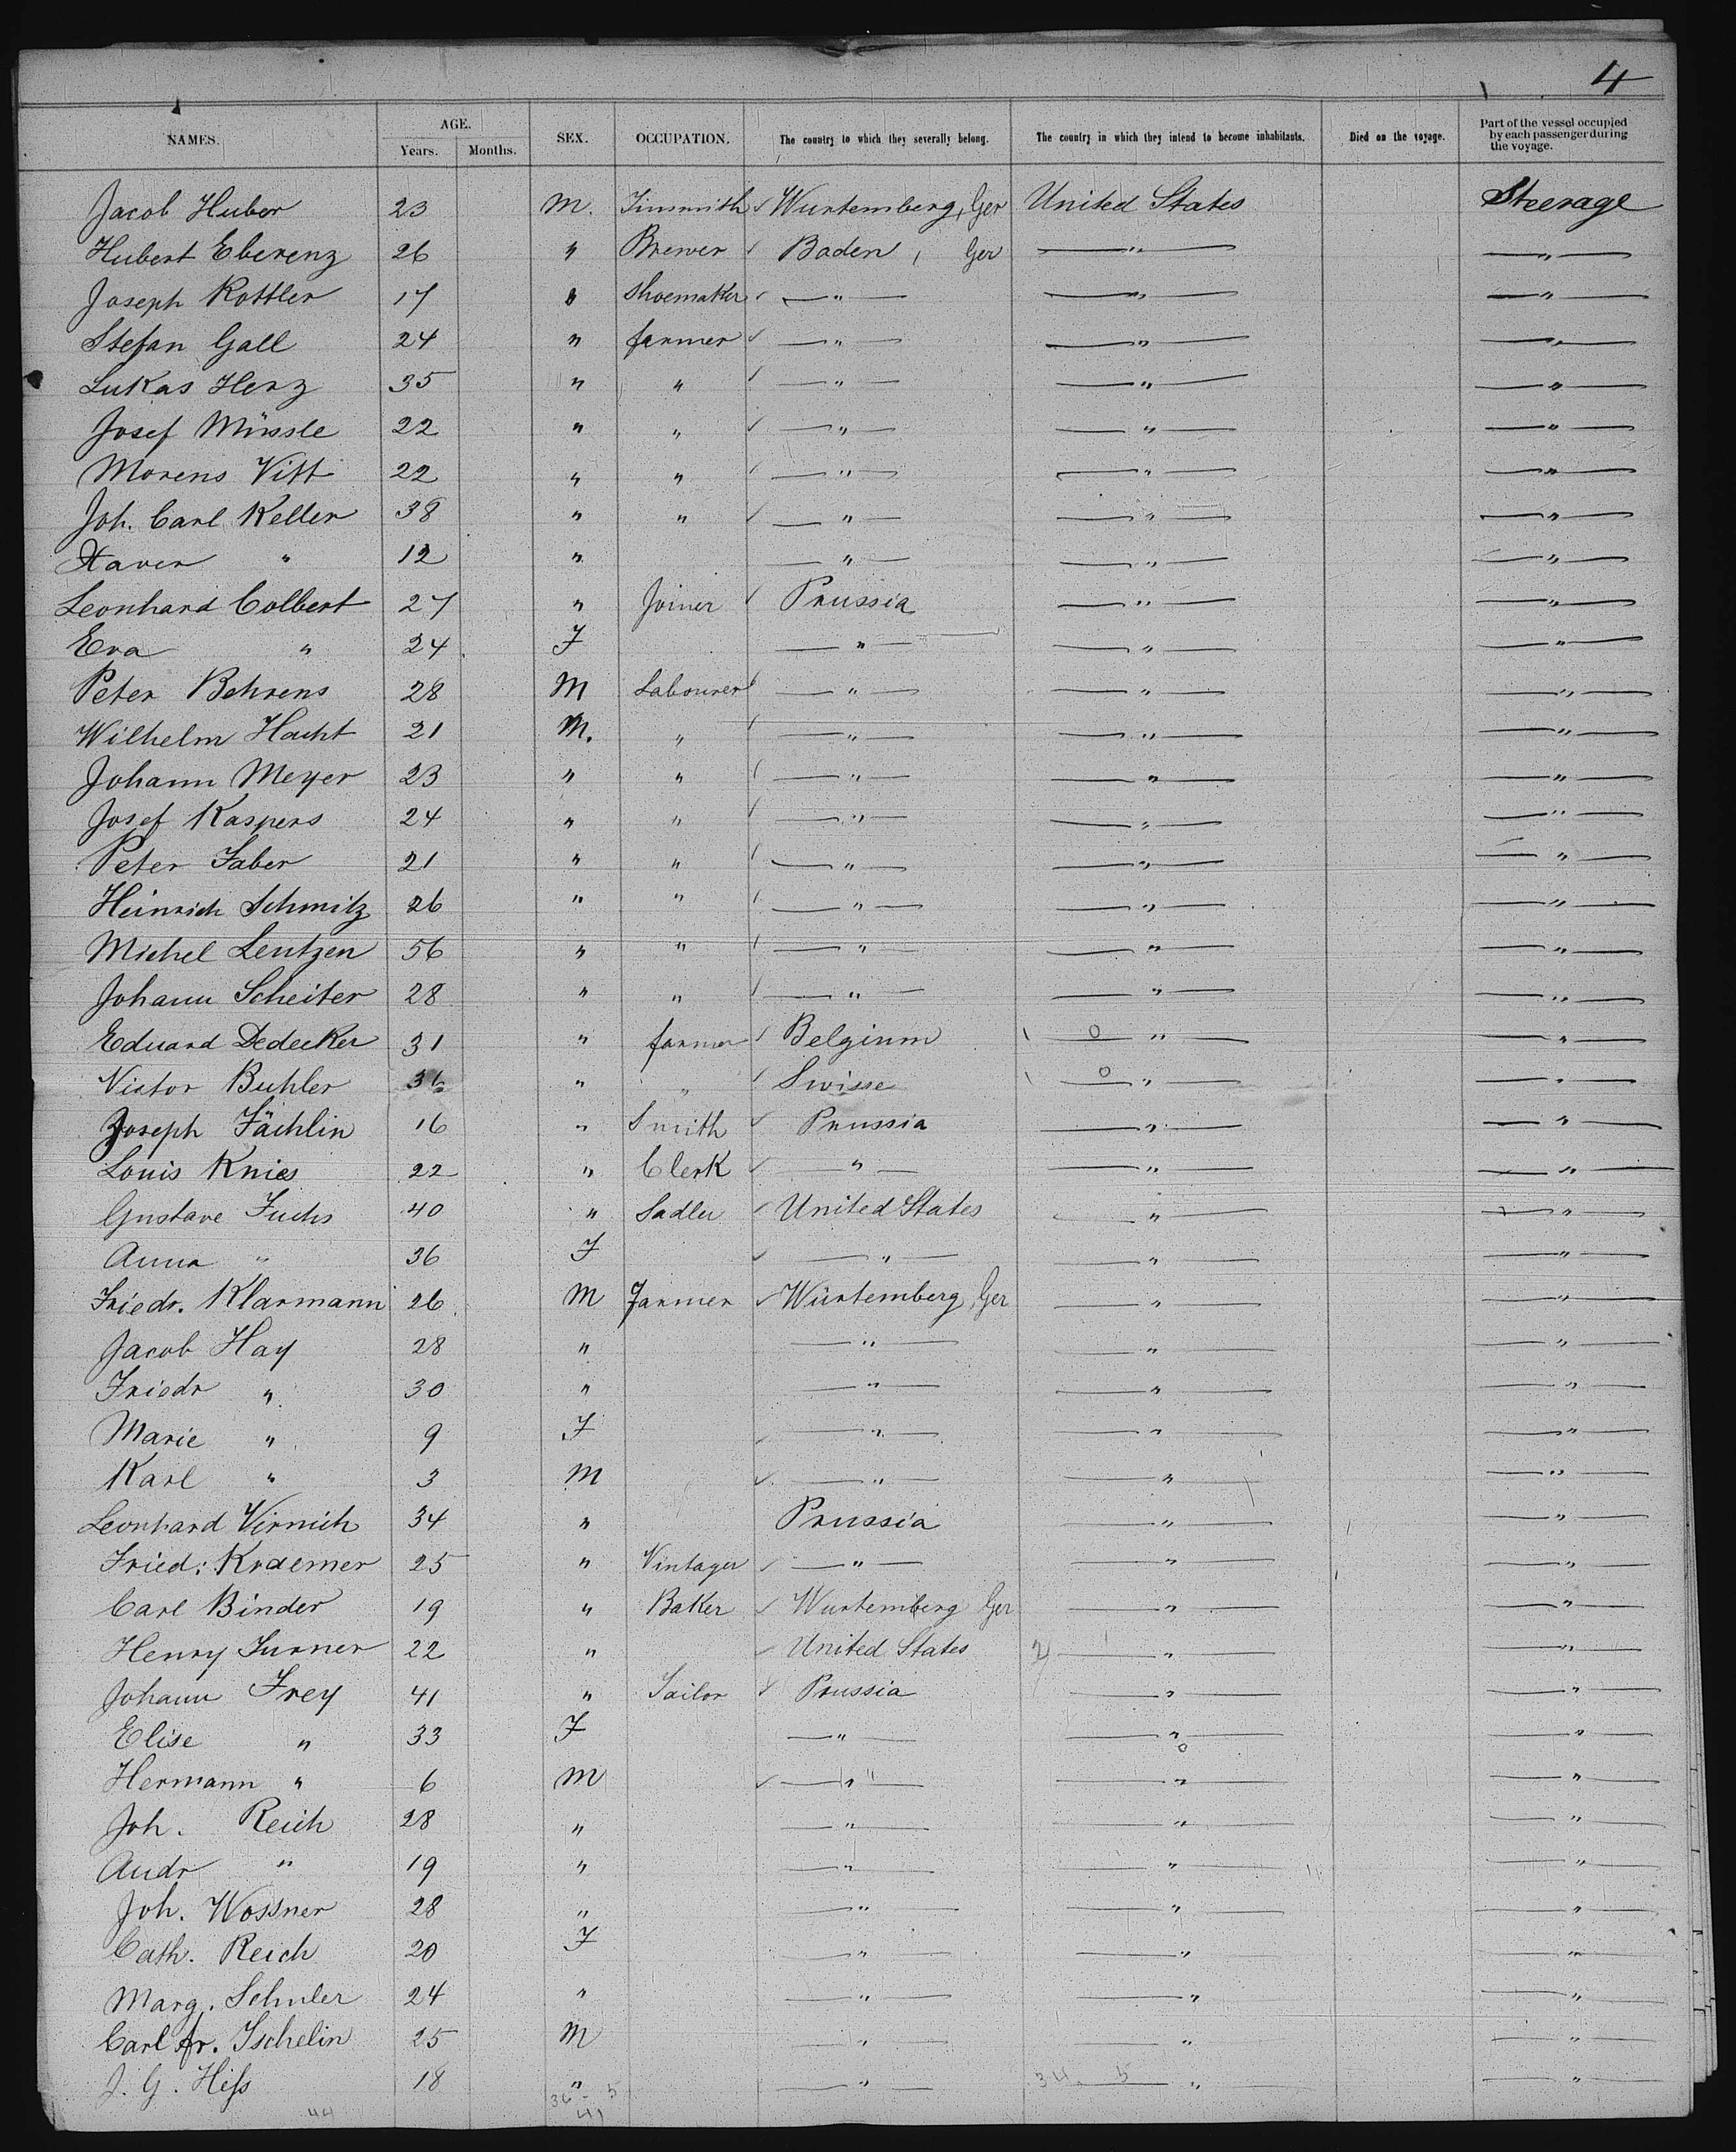 4
NAMES. AGE. Years. Months. SEX. OCCUPATION. The country to which they severally belong. The country in which they intend to become inhabitants. Died on the voyage. Part of the vessel occupied by each passenger during the voyage.
Jacob Huber 23 M. Tinsmith ✓ Wurtemberg, Ger United States Steerage
Hubert Eberenz 26 " Brewer ✓ Baden, Ger —"— —"—
Joseph Kottler 17 " Shoemaker ✓ —"— —"— —"—
Stefan Gall 24 " farmer ✓ —"— —"— —"—
Lukas Herz 35 " " ✓ —"— —"— —"—
Josef Müssle 22 " " ✓ —"— —"— —"—
Morens Vitt 22 " " ✓ —"— —"— —"—
Joh. Carl Keller 38 " " ✓ —"— —"— —"—
Xaver " 12 " —"— —"— —"—
Leonhard Colbert 27 " Joiner ✓ Prussia —"— —"—
Eva " 24 F —"— —"— —"—
Peter Behrens 28 M Labourer ✓ —"— —"— —"—
Wilhelm Hacht 21 M. " ✓ —"— —"— —"—
Johann Meyer 23 " " ✓ —"— —"— —"—
Josef Kaspers 24 " " ✓ —"— —"— —"—
Peter Faber 21 " " ✓ —"— —"— —"—
Heinrich Schmitz 26 " " ✓ —"— —"— —"—
Michel Lentzen 56 " " ✓ —"— —"— —"—
Johann Scheiter 28 " " ✓ —"— —"— —"—
Eduard Dedecker 31 " farmer ✓ Belgium —"— —"—
Victor Buhler 36 " " ✓ Swisse —"— —"—
Joseph Fächlin 16 " Smith ✓ Prussia —"— —"—
Louis Knies 22 " Clerk ✓ —"— —"— —"—
Gustave Fuchs 40 " Sadler ✓ United States —"— —"—
Anna " 36 F ✓ —"— —"— —"—
Friedr. Klarmann 26 M Farmer ✓ Würtemberg, Ger —"— —"—
Jacob Hay 28 " —"— —"— —"—
Friedr " 30 " —"— —"— —"—
Marie " 9 F ✓ —"— —"— —"—
Karl " 3 M ✓ —"— —"— —"—
Leonhard Virnich 34 " Prussia —"— —"—
Fried: Kraemer 25 " Vintager ✓ —"— —"— —"—
Carl Binder 19 " Baker ✓ Wurtemberg Ger —"— —"—
Henry Turner 22 " ✓ United States —"— —"—
Johann Frey 41 " Tailor ✓ Prussia —"— —"—
Elise " 33 F —"— —"— —"—
Hermann " 6 M ✓ —"— —"— —"—
Joh. Reich 28 " —"— —"— —"—
Andr " 19 " —"— —"— —"—
Joh. Wossner 28 " —"— —"— —"—
Cath. Reich 20 F —"— —"— —"—
Marg. Schuler 24 " —"— —"— —"—
Carl Fr. Ischelin 25 M —"— —"— —"—
J. G. Hess 18 " —"— 34. 5 —"— —"—
44 36 - 5
41